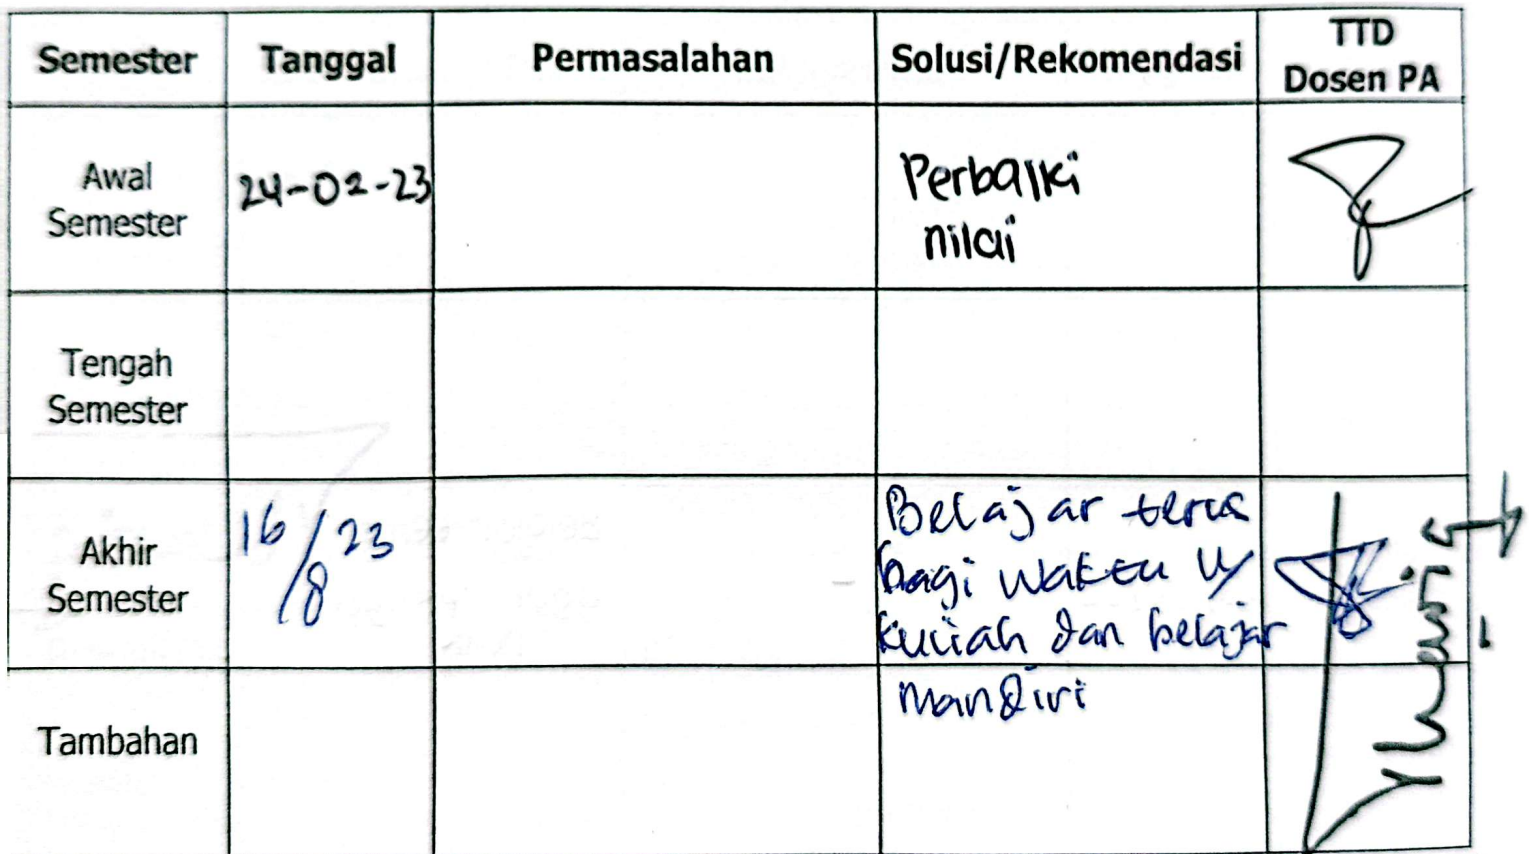 Semester Tanggal Permasalahan Solusi/Rekomendasi TTD
Dosen PA
Awal
Semester
24-02-23
Perbaiki
nilai
Tengah
Semester
Akhir
Semester
16/8 23
Belajar terus
bagi waktu u/
kuliah dan belajar
mandiri
Tambahan